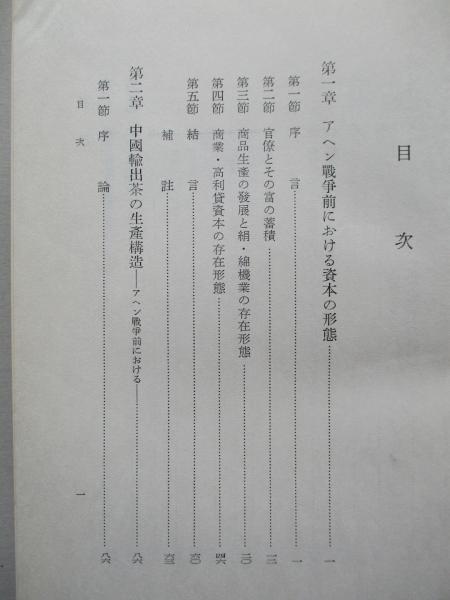 目次
第一章 アヘン戰爭前における資本の形態……一
第一節 序言……一
第二節 官僚とその富の蓄積……一二
第三節 商品生產の發展と絹・綿機業の存在形態……二〇
第四節 商業・高利貸資本の存在形態……四六
第五節 結言……六〇
補註……六三
第二章 中國輸出茶の生產構造——アヘン戰爭前における——……八六
第一節 序論……八六
目次
一